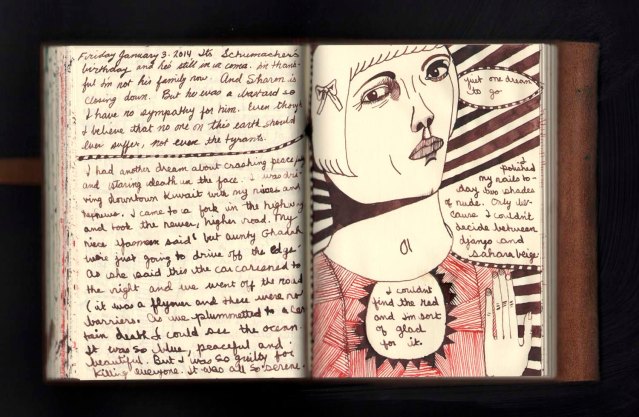 Friday January 3. 2014 Its Schumacher's
birthday and he's still in a coma. Im thank-
ful im not his family now. And Sharon is
closing down. But he was a bastard so
I have no sympathy for him. Even though
I believe that no one on this earth should
ever suffer, not even the tyrants.
I had another dream about crashing peacefully
and staring death in the face. I was dri-
ving downtown Kuwait with my nieces and
nephews. I came to a fork in the highway
and took the newer, higher road. My
niece Yasmeen said "but aunty Ghadah
we're just going to drive off the edge."
As she said this the car careened to
the right and we went off the road
(it was a flyover and there were no
barriers. As we plummetted to a cer-
tain death I could see the ocean.
It was so blue, peaceful and
beautiful. But I was so guilty for
killing everyone. It was all so serene.
just one dream
to go
I polished
my nails to-
day two shades
of nude. Only be-
cause I couldn't
decide between
django and
sahara beige.
I couldn't
find the red
and I'm sort
of glad
for it.